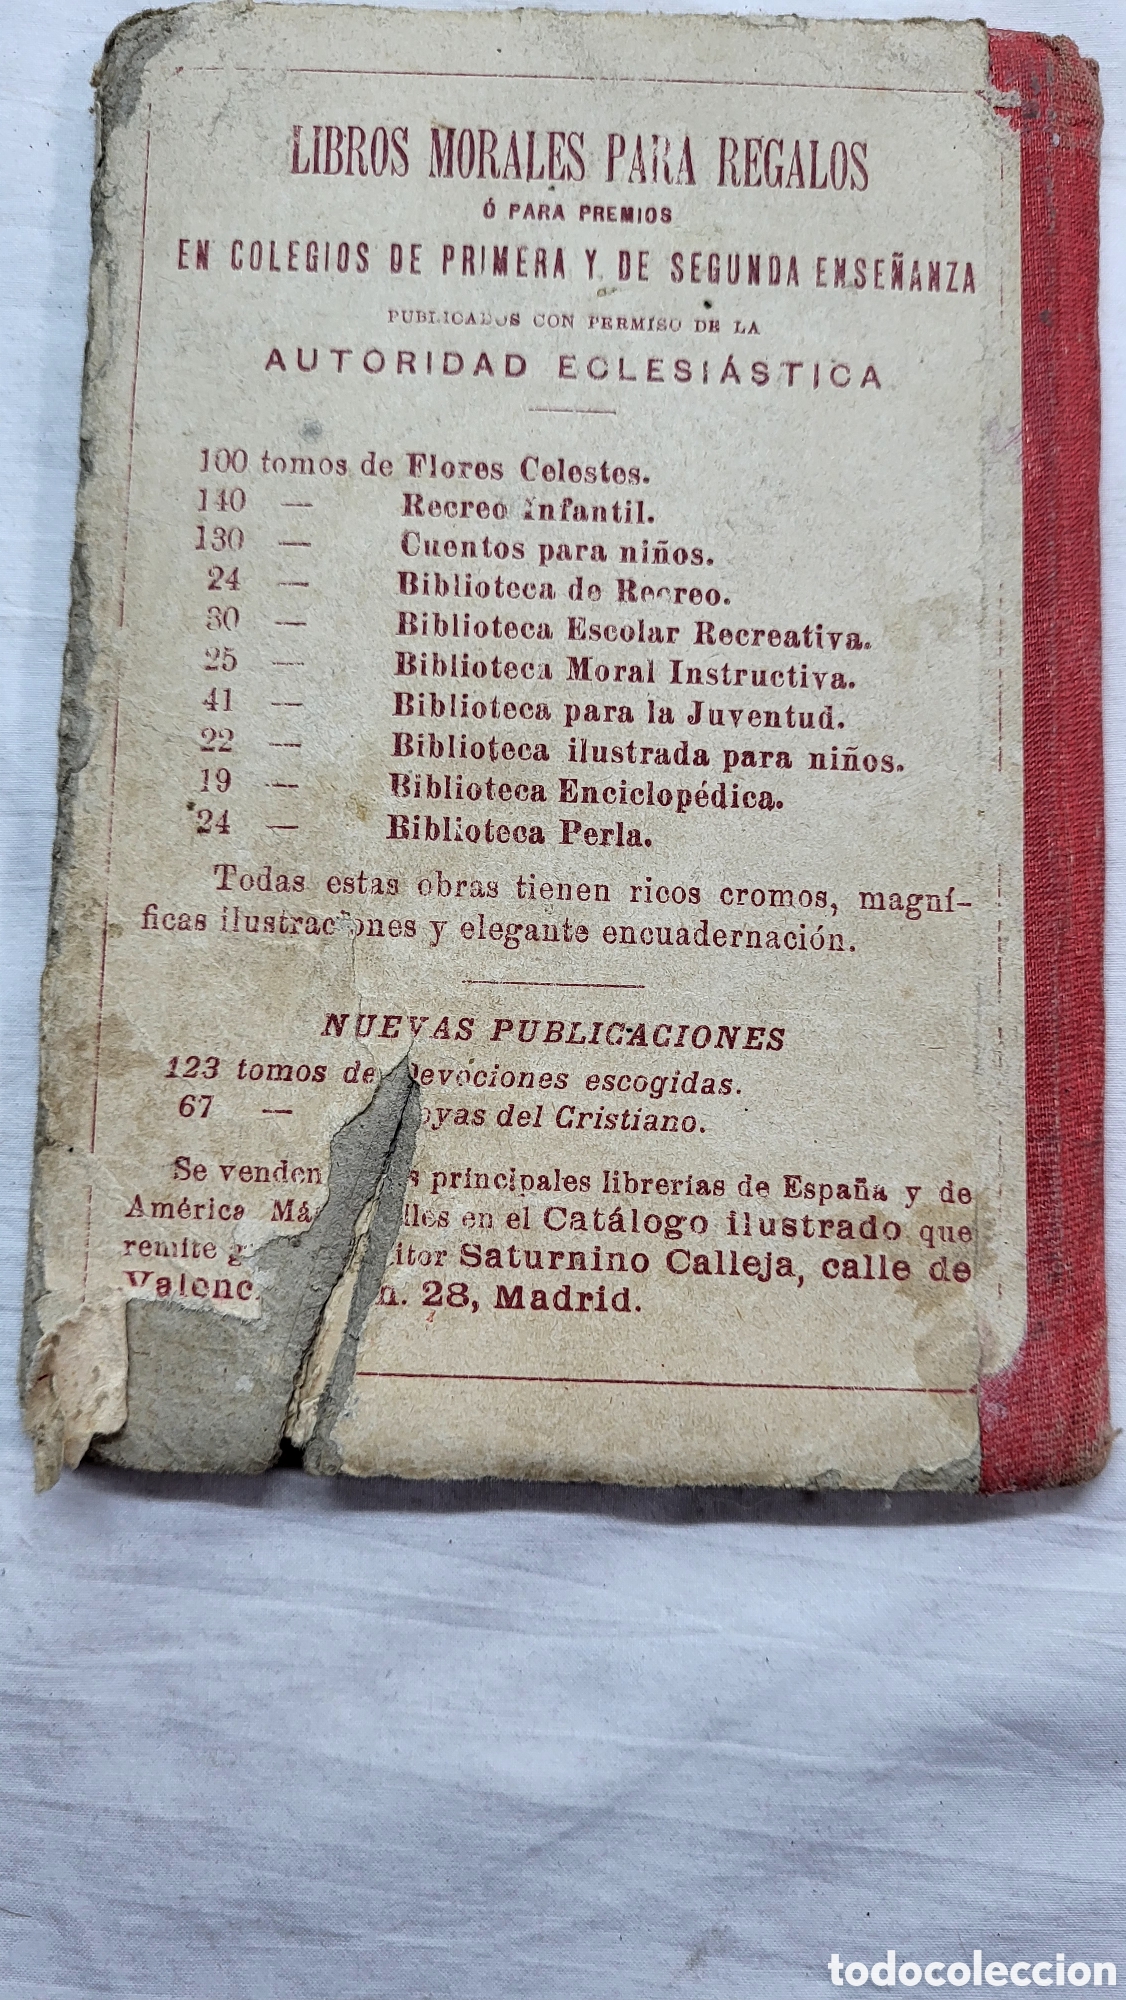 LIBROS MORALES PARA REGALOS
Ó PARA PREMIOS
EN COLEGIOS DE PRIMERA Y DE SEGUNDA ENSEÑANZA
PUBLICADOS CON PERMISO DE LA
AUTORIDAD ECLESIÁSTICA
100 tomos de Flores Celestes.
140 — Recreo Infantil.
130 — Cuentos para niños.
24 — Biblioteca de Recreo.
30 — Biblioteca Escolar Recreativa.
25 — Biblioteca Moral Instructiva.
41 — Biblioteca para la Juventud.
22 — Biblioteca ilustrada para niños.
19 — Biblioteca Enciclopédica.
24 — Biblioteca Perla.
Todas estas obras tienen ricos cromos, magní-
ficas ilustraciones y elegante encuadernación.
NUEVAS PUBLICACIONES
123 tomos de Devociones escogidas.
67 — oyas del Cristiano.
Se venden s principales librerías de España y de
América Má lles en el Catálogo ilustrado que
remite g itor Saturnino Calleja, calle de
Valenc n. 28, Madrid.
todocoleccion